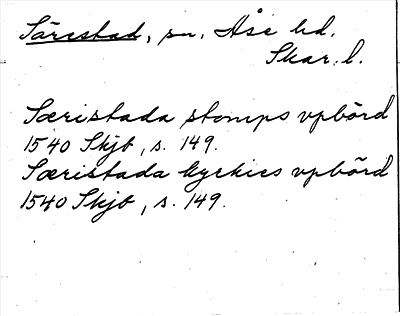 Särestad, sn. Åse hd.
Skar. l.
Særistada stomps vpbörd
1540 Skjb, s. 149.
Særistada kyrkies vpbörd
1540 Skjb, s. 149.